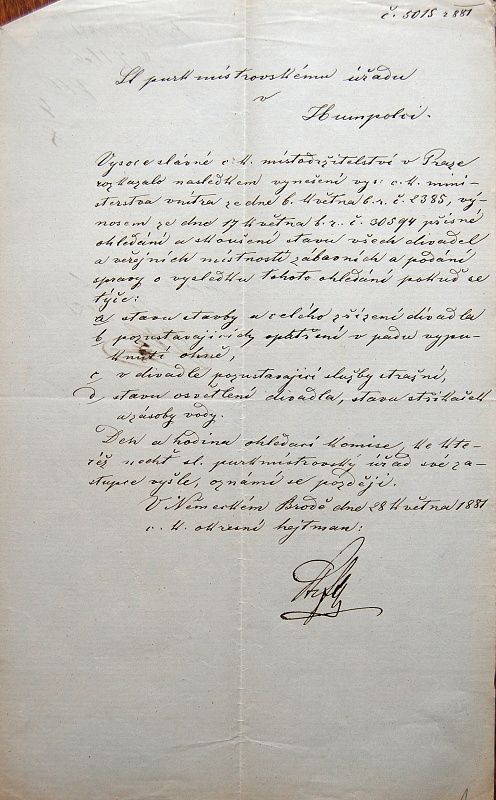 č. 5015 z 881
Sl purkmistrovskému úřadu
v
Humpolci.
Vysoce slavné c. k. místodržitelství v Praze
rozkazalo následkem vynešení vys: c. k. mini-
sterstva vnitra ze dne 6. května b. r. č. 2385, vý-
nosem ze dne 17 května b. r. č. 30594 přísné
ohledání a zkoušení stavu všech divadel
a veřejných místností zábavních a podání
zpravy o vysledku tohoto ohledání pokud se
týče:
a stavu stavby a celého zřízení divadla
b pozustavajících opatření v padu vypu-
knutí ohně,
c, v divadle pozustavající služby strašné,
d, stavu osvětlení divadla, stavu stříkaček
a zásoby vody.
Den a hodina ohledací komise, ke kte-
réž nechť sl. purkmistrovský úřad své zá-
stupce vyšle, oznámí se později.
V Německém Brodě dne 28 května 1881
c. k. okresní hejtman: